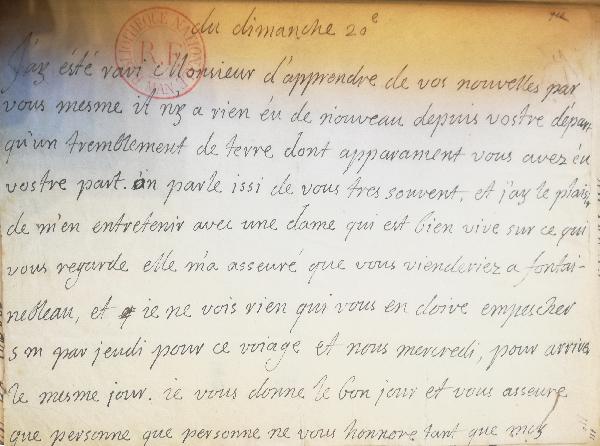 du dimanche 20e
J'ay ésté ravi Monsieur d'apprendre de vos nouvelles par
vous mesme il ny a rien éu de nouveau depuis vostre départ
qu'un tremblement de terre dont apparament vous avez éu
vostre part. on parle issi de vous tres souvent, et j'ay le plaisir
de m'en entretenir avec une dame qui est bien vive sur ce qui
vous regarde elle m'a asseuré que vous vienderiez a fontai-
nebleau, et ie ne vois rien qui vous en doive empescher
s m par jeudi pour ce voiage et nous mercredi, pour arriver
le mesme jour. ie vous donne le bon jour et vous asseure
que personne que personne ne vous honnore tant que moy
BIBLIOTHEQUE NATIONALE
R.F.
MAN.